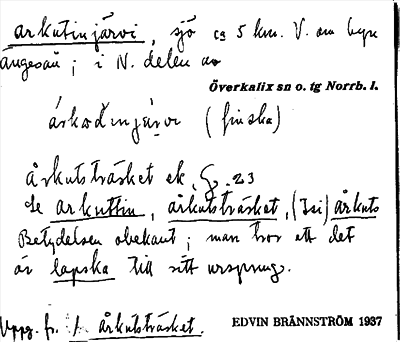 arkutinjärvi, sjö ca 5 km. V. om byn
ängesån; i N. delen av
Överkalix sn o. tg Norrb. l.
(finska)
årkutsträsket ek. 23
Se arkuttin, årkutsträsket, (Isi) årkuts
Betydelsen obekant; man tror att det
är lapska till sitt ursprung.
Uppg. fr. årkutsträsket.
EDVIN BRÄNNSTRÖM 1937